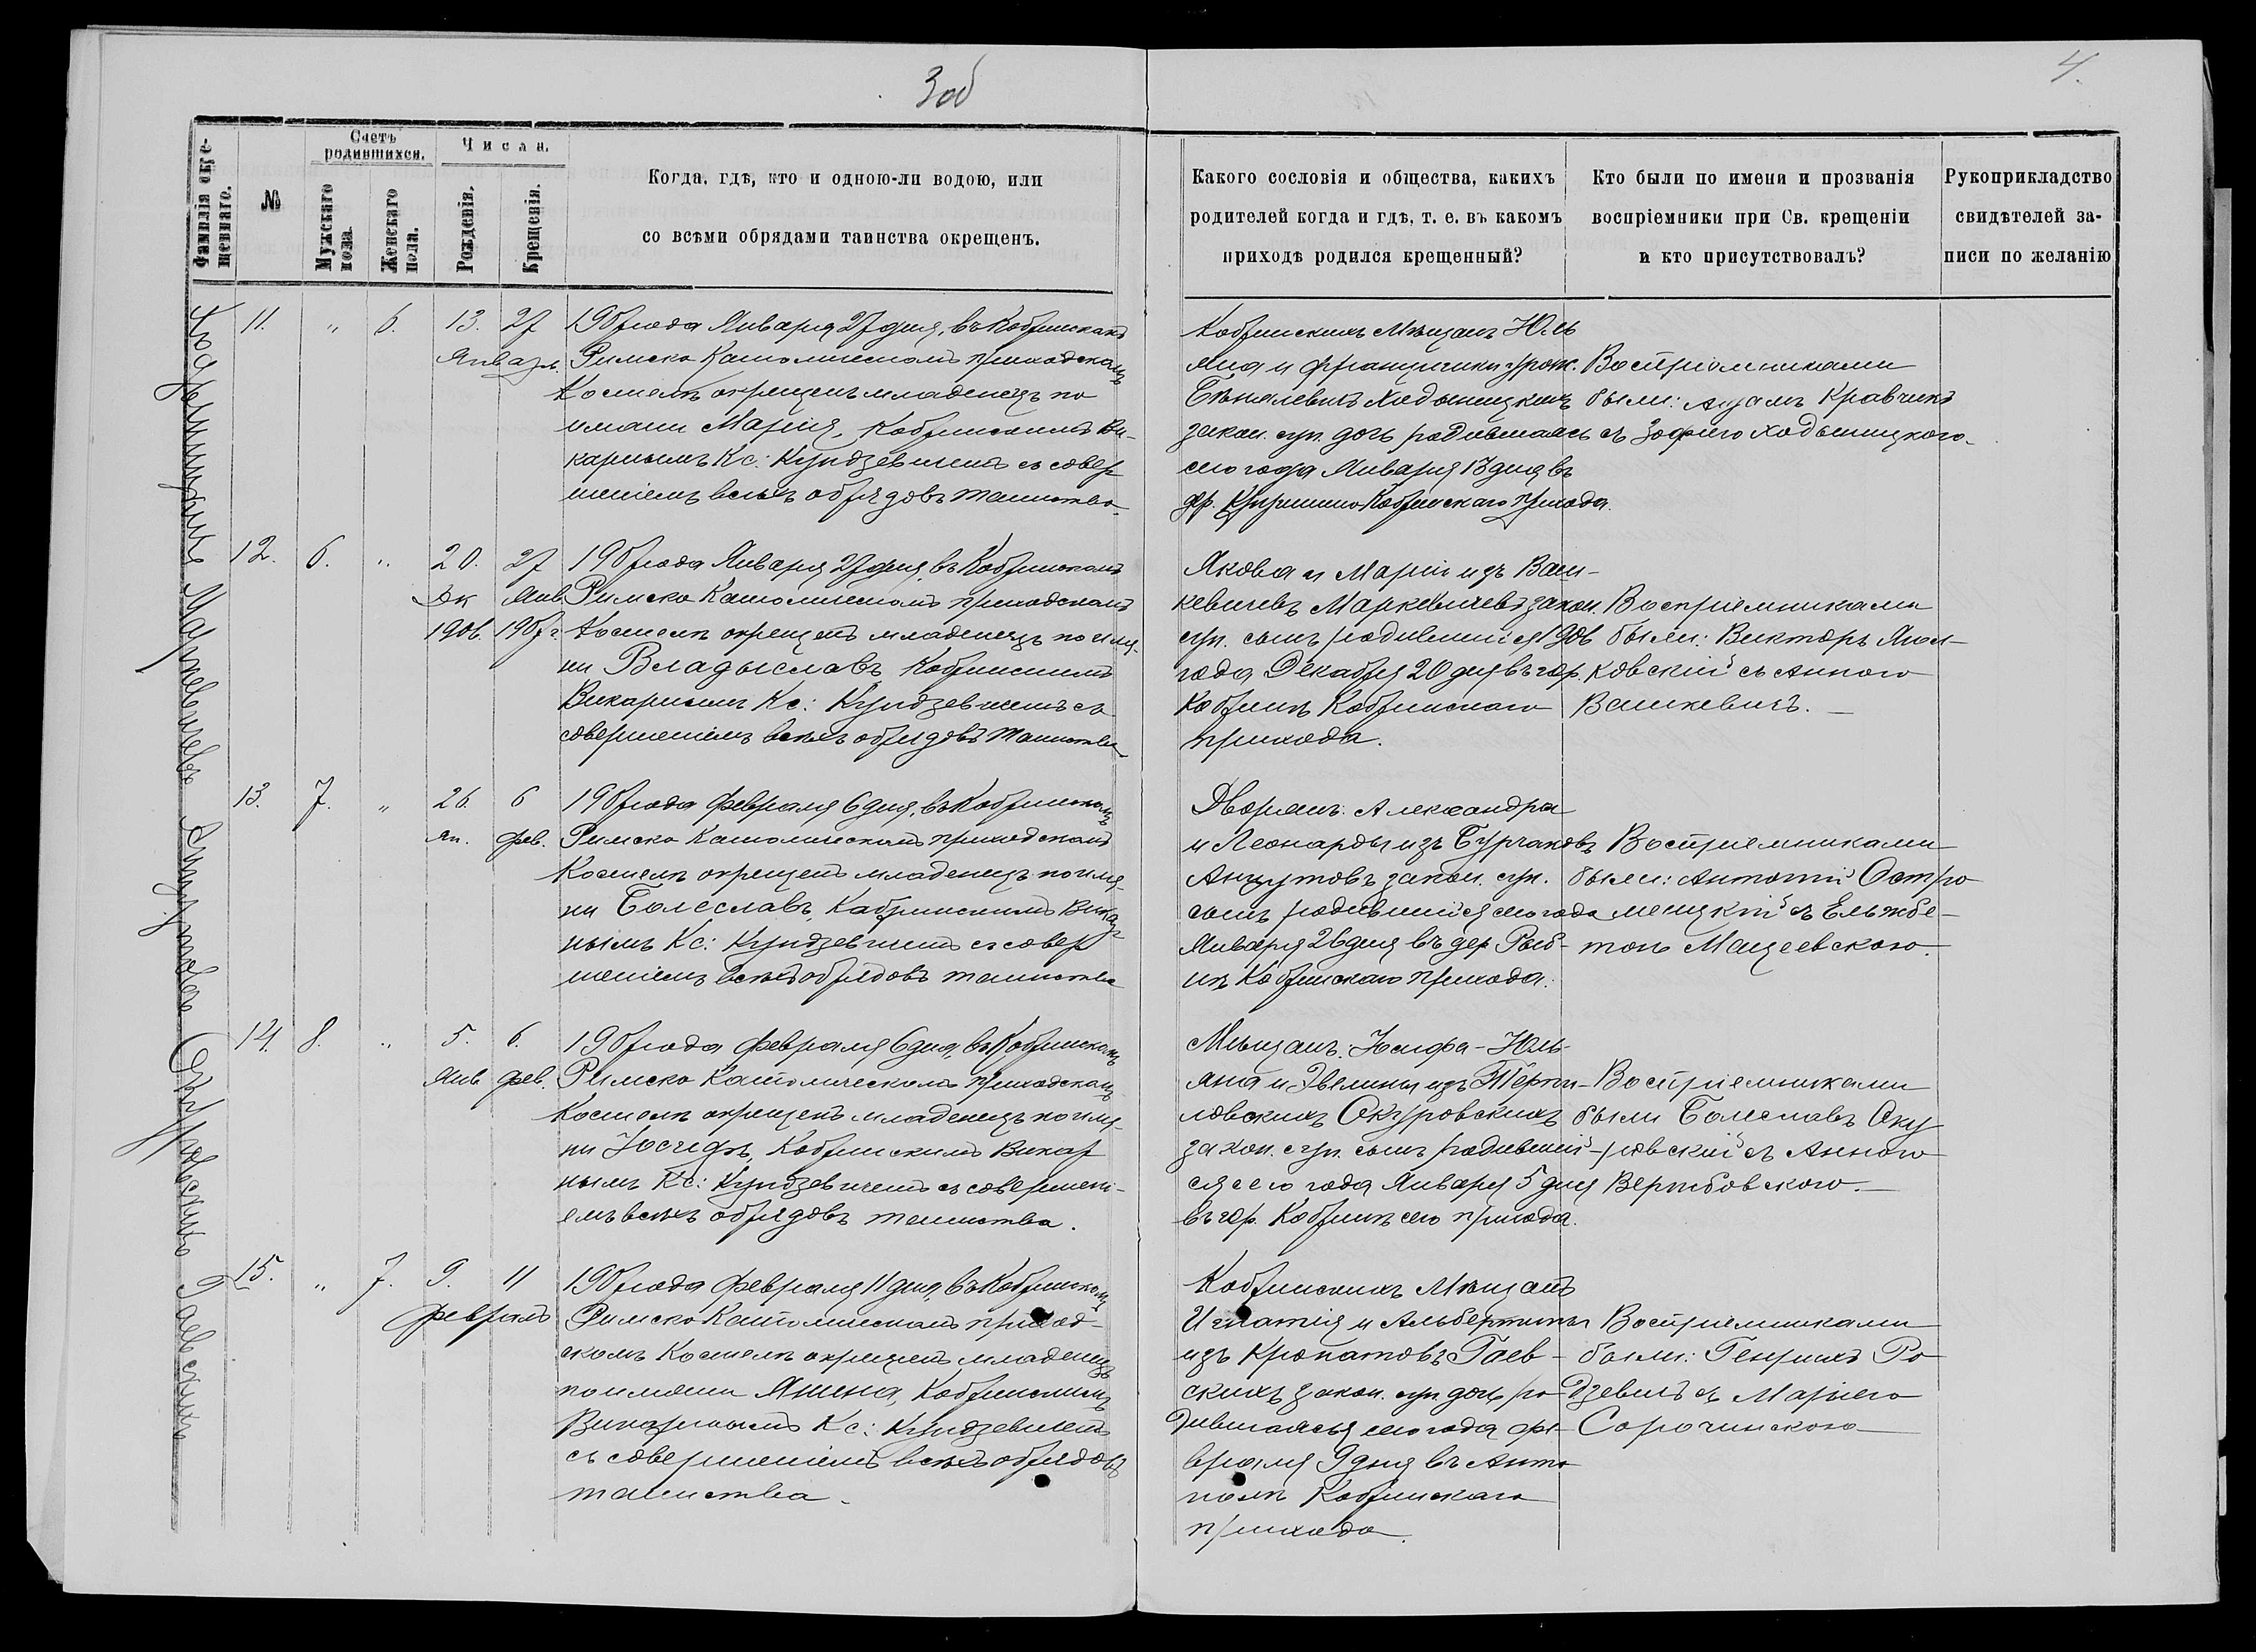 3об
4.
Фамилія окре-
щеннаго.
№
Счетъ
родившихся.
Мужскаго
пола.
Женскаго
пола.
Числа.
Рожденія.
Крещенія.
Когда, гдѣ, кто и одною-ли водою, или
со всѣми обрядами таинства окрещенъ.
Какого сословія и общества, какихъ
родителей когда и гдѣ, т. е. въ какомъ
приходѣ родился крещенный?
Кто были по имени и прозванія
воспріемники при Св. крещеніи
и кто присутствовалъ?
Рукоприкладство
свидѣтелей за-
писи по желанію
Ходыницкихъ
11. " 6. 13. 27
Января.
1907 года Января 27 дня, въ Кобринскомъ
Римско Католическомъ приходскомъ
Костелѣ окрещенъ младенецъ по
имени Марія, Кобринскимъ Ви-
карнымъ Кс: Кундзевичемъ съ совер
шеніемъ всѣхъ обрядовъ таинства.
Кобринскихъ Мѣщанъ Юль
яна и Францишки урож.
Ходыницкихъ
закон. суп. дочь родившаяся
сего года Января 13 дня въ
дер. Кобринскаго прихода.
Воспріемниками
были: Адамъ Кравчикъ
съ Зофіею Ходыницкого
Маркевичевъ
12. 6. " 20. 27
Дек Янв
1906. 1907 г.
1907 года Января 27 дня, въ Кобринскомъ
Римско Католическомъ приходскомъ
Костелѣ окрещенъ младенецъ по име-
ни Владыславъ, Кобринскимъ
Викарнымъ Кс: Кундзевичемъ съ
совершеніемъ всѣхъ обрядовъ таинства
Якова и Маріи изъ Ваш-
кевичевъ Маркевичевъ закон.
суп. сынъ родившійся 1906
года Декабря 20 дня въ гор.
Кобринѣ Кобринскаго
прихода.
Воспріемниками
были: Викторъ Яни-
ковскій съ Анною
Вашкевичъ.
Анцутовъ
13. 7. " 26. 6
Ян. Фев.
1907 года Февраля 6 дня, въ Кобринскомъ
Римско Католическомъ приходскомъ
Костелѣ окрещенъ младенецъ по име-
ни Болеславъ, Кобринскимъ Викар
нымъ Кс: Кундзевичемъ съ совер
шеніемъ всѣхъ обрядовъ таинства
Дворянъ: Александра
и Леонарды изъ Бурчаковъ
Анцутовъ закон. суп.
сынъ родившійся сего года
Января 26 дня въ дер. Рыб-
нѣ Кобринскаго прихода.
Воспріемниками
были: Антоній Остро
менцкій съ Ельжбе-
тою Мацеевскою.
Окуровскихъ
14. 8. " 5. 6.
Янв Фев.
1907 года Февраля 6 дня, въ Кобринскомъ
Римско Католическомъ приходскомъ
Костелѣ окрещенъ младенецъ по име-
ни Іосифъ, Кобринскимъ Викар
нымъ Кс: Кундзевичемъ съ совершені-
емъ всѣхъ обрядовъ таинства.
Мѣщанъ: Іосифа-Юль-
яна и Эвелины изъ
Окуровскихъ
закон. суп. сынъ родившій-
ся сего года Января 5 дня
въ гор. Кобринѣ сего прихода.
Воспріемниками
были Болеславъ Оку
ровскій съ Анною
Вербовского.
Гаевскихъ
15. " 7. 9. 11
Февраль
1907 года Февраля 11 дня, въ Кобринскомъ
Римско Католическомъ приход-
скомъ Костелѣ окрещенъ младенецъ
по имени Янина, Кобринскимъ
Викарнымъ Кс: Кундзевичемъ
съ совершеніемъ всѣхъ обрядовъ
таинства.
Кобринскихъ Мѣщанъ
Игнатія и Альбертины
изъ Кропатовъ Гаев-
скихъ закон. суп. дочь ро
дившаяся сего года Фе-
враля 9 дня въ Анто
полѣ Кобринскаго
прихода.
Воспріемниками
были: Генрихъ Ро
дзевичъ съ Маріею
Сорочинскою